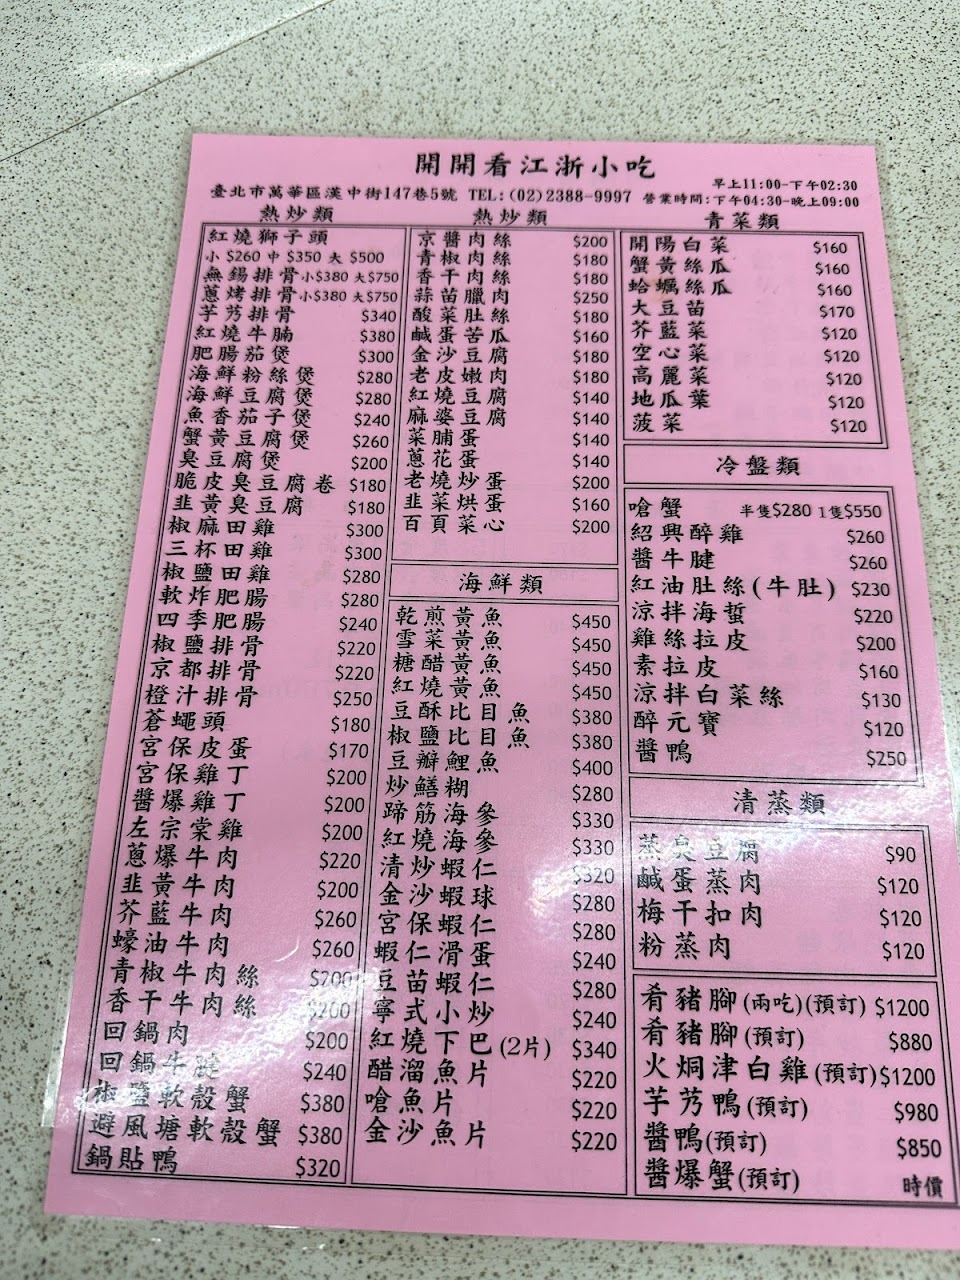 開開看江浙小吃
臺北市萬華區漢中街147巷5號 TEL:(02)2388-9997 營業時間:早上11:00-下午02:30
下午04:30-晚上09:00
熱炒類
紅燒獅子頭
小$260 中$350 大$500
無錫排骨小$380 大$750
蔥烤排骨小$380 大$750
芋艿排骨 $340
紅燒牛腩 $380
肥腸茄煲 $300
海鮮粉絲煲 $280
海鮮豆腐煲 $280
魚香茄子煲 $240
蟹黃豆腐煲 $260
臭豆腐煲 $200
脆皮臭豆腐卷 $180
韭黃臭豆腐 $180
椒麻田雞 $300
三杯田雞 $300
椒鹽田雞 $280
軟炸肥腸 $280
四季肥腸 $240
椒鹽排骨 $220
京都排骨 $220
橙汁排骨 $250
蒼蠅頭 $180
宮保皮蛋 $170
宮保雞丁 $200
醬爆雞丁 $200
左宗棠雞 $200
蔥爆牛肉 $220
韭黃牛肉 $200
芥藍牛肉 $260
蠔油牛肉 $260
青椒牛肉絲 $200
香干牛肉絲 $200
回鍋肉 $200
回鍋牛腱 $240
椒鹽軟殼蟹 $380
避風塘軟殼蟹 $380
鍋貼鴨 $320
熱炒類
京醬肉絲 $200
青椒肉絲 $180
香干肉絲 $180
蒜苗臘肉 $250
酸菜肚絲 $180
鹹蛋苦瓜 $160
金沙豆腐 $180
老皮嫩肉 $180
紅燒豆腐 $140
麻婆豆腐 $140
菜脯蛋 $140
蔥花蛋 $140
老燒炒蛋 $200
韭菜烘蛋 $160
百頁菜心 $200
海鮮類
乾煎黃魚 $450
雪菜黃魚 $450
糖醋黃魚 $450
紅燒黃魚 $450
豆酥比目魚 $380
椒鹽比目魚 $380
豆瓣鯉魚 $400
炒鱔糊 $280
蹄筋海參 $330
紅燒海參 $330
清炒蝦仁 $320
金沙蝦球 $280
宮保蝦仁 $280
蝦仁滑蛋 $240
豆苗蝦仁 $280
寧式小炒 $240
紅燒下巴(2片) $340
醋溜魚片 $220
嗆魚片 $220
金沙魚片 $220
青菜類
開陽白菜 $160
蟹黃絲瓜 $160
蛤蠣絲瓜 $160
大豆苗 $170
芥藍菜 $120
空心菜 $120
高麗菜 $120
地瓜葉 $120
菠菜 $120
冷盤類
嗆蟹 半隻$280 1隻$550
紹興醉雞 $260
醬牛腱 $260
紅油肚絲(牛肚) $230
涼拌海蜇 $220
雞絲拉皮 $200
素拉皮 $160
涼拌白菜絲 $130
醉元寶 $120
醬鴨 $250
清蒸類
蒸臭豆腐 $90
鹹蛋蒸肉 $120
梅干扣肉 $120
粉蒸肉 $120
肴豬腳(兩吃)(預訂) $1200
肴豬腳(預訂) $880
火炯津白雞(預訂)$1200
芋艿鴨(預訂) $980
醬鴨(預訂) $850
醬爆蟹(預訂) 時價